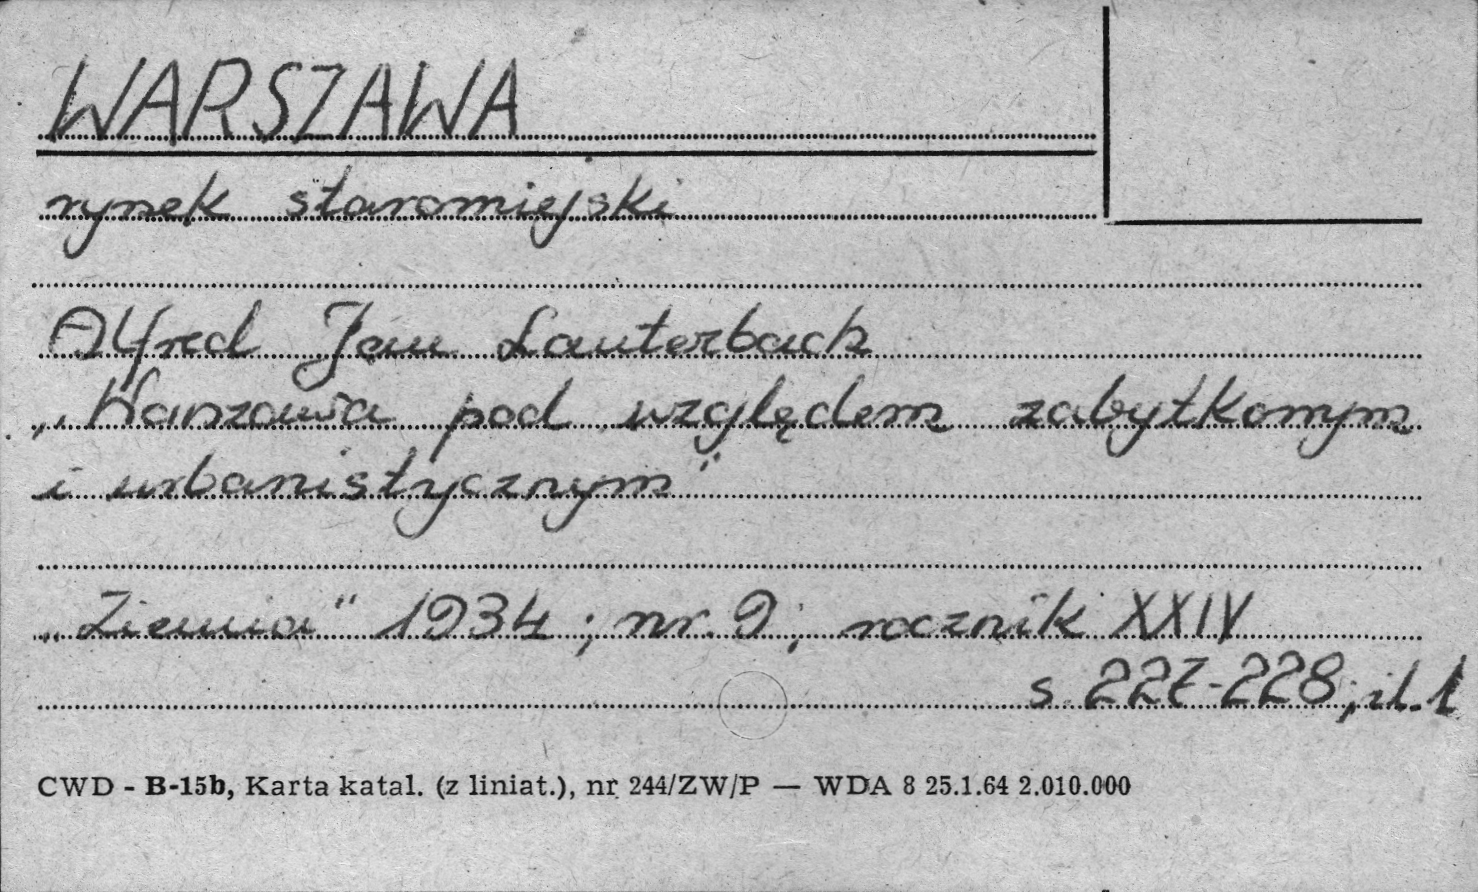 WARSZAWA
rynek staromiejski
Alfred Jan Lauterbach
„Warszawa pod względem zabytkowym
i urbanistycznym"
„Ziemia" 1934; nr. 9; rocznik XXIV
s. 227-228; il. 1
CWD - B-15b, Karta katal. (z liniat.), nr 244/ZW/P — WDA 8 25.1.64 2.010.000